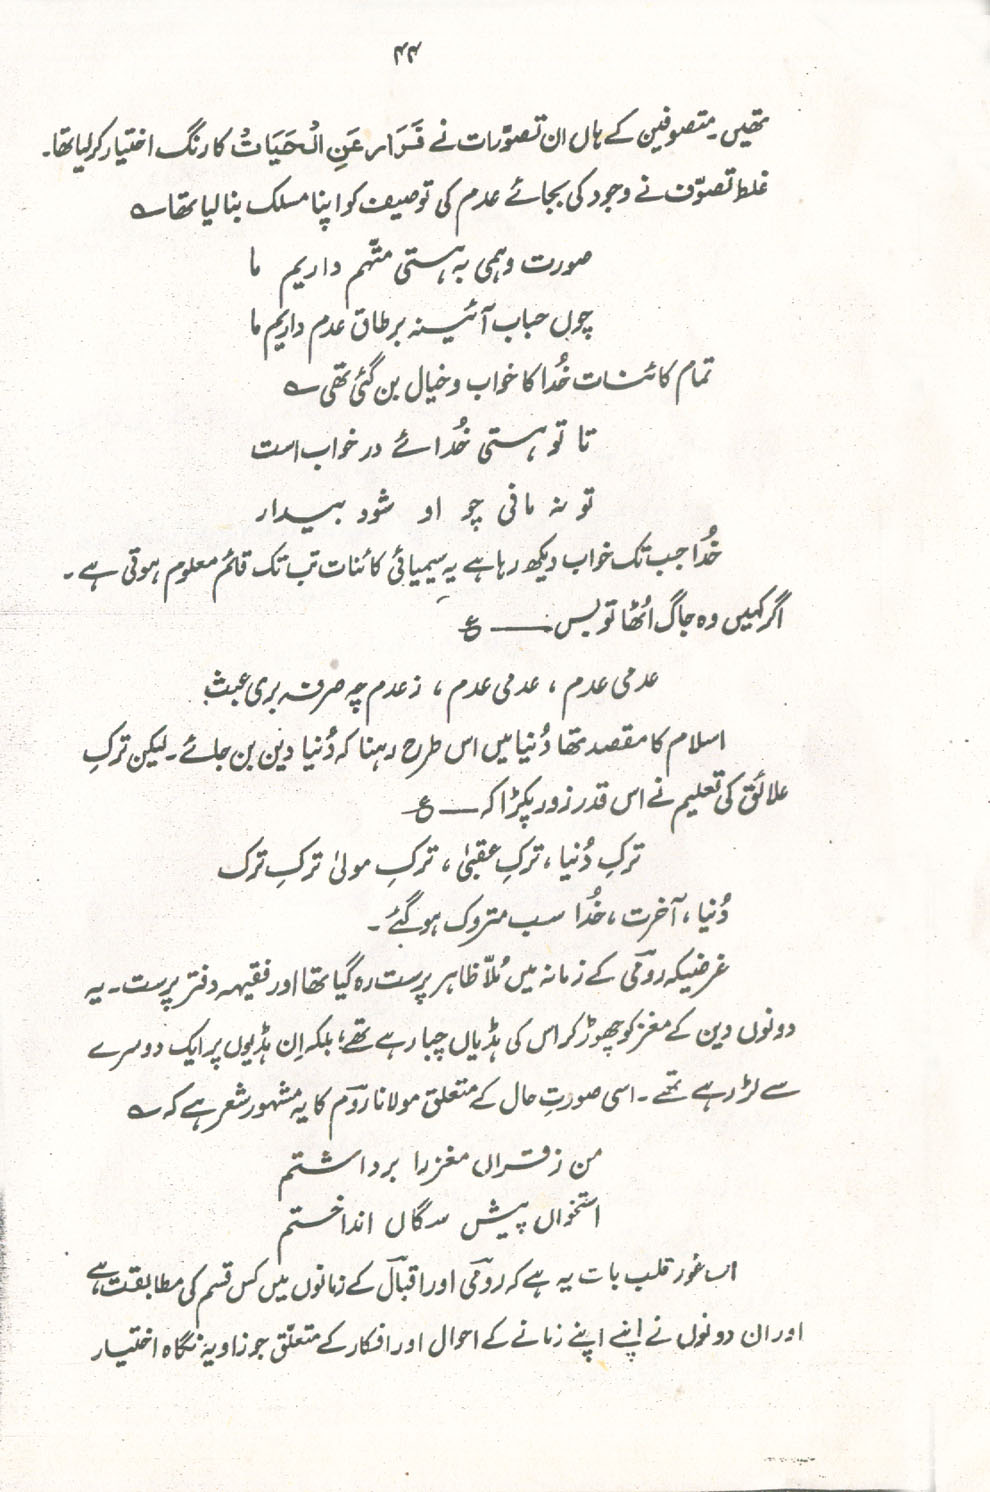 ۴۴
تھیں۔ متصوفین کے ہاں ان تصوّرات نے فَرَار عَنِ الْحَیَاتْ کا رنگ اختیار کر لیا تھا۔
غلط تصوّف نے وجود کی بجائے عدم کی توصیف کو اپنا مسلک بنا لیا تھا ؎
صورت وہمی بہ ہستی متّہم داریم ما
چوں حباب آئینہ بر طاق عدم داریم ما
تمام کائنات خُدا کا خواب و خیال بن گئی تھی ؎
تا تو ہستی خُدائے در خواب است
تو نہ مانی چو او شود بیدار
خُدا جب تک خواب دیکھ رہا ہے یہ سیمیائی کائنات تب تک قائم معلوم ہوتی ہے۔
اگر کہیں وہ جاگ اُٹھا تو بس —— ع
عدمی عدم، عدمی عدم، ز عدم چہ صرفہ بری عبث
اسلام کا مقصد تھا دُنیا میں اس طرح رہنا کہ دُنیا دین بن جائے۔ لیکن ترکِ
علائق کی تعلیم نے اس قدر زور پکڑا کہ —— ع
ترکِ دُنیا، ترکِ عقبیٰ، ترکِ مولیٰ ترکِ ترک
دُنیا، آخرت، خُدا سب متروک ہو گئے۔
غرضیکہ رومیؔ کے زمانہ میں مُلّا ظاہر پرست رہ گیا تھا اور فقیہہ دفتر پرست۔ یہ
دونوں دین کے مغز کو چھوڑ کر اس کی ہڈیاں چبا رہے تھے؛ بلکہ اِن ہڈیوں پر ایک دوسرے
سے لڑ رہے تھے۔ اسی صورتِ حال کے متعلق مولانا رومؔ کا یہ مشہور شعر ہے کہ ؎
من ز قرآں مغز را برداشتم
استخواں پیش سگاں انداختم
اب غور طلب بات یہ ہے کہ رومیؔ اور اقبالؔ کے زمانوں میں کس قسم کی مطابقت ہے
اور ان دونوں نے اپنے اپنے زمانے کے احوال اور افکار کے متعلّق جو زاویۂ نگاہ اختیار